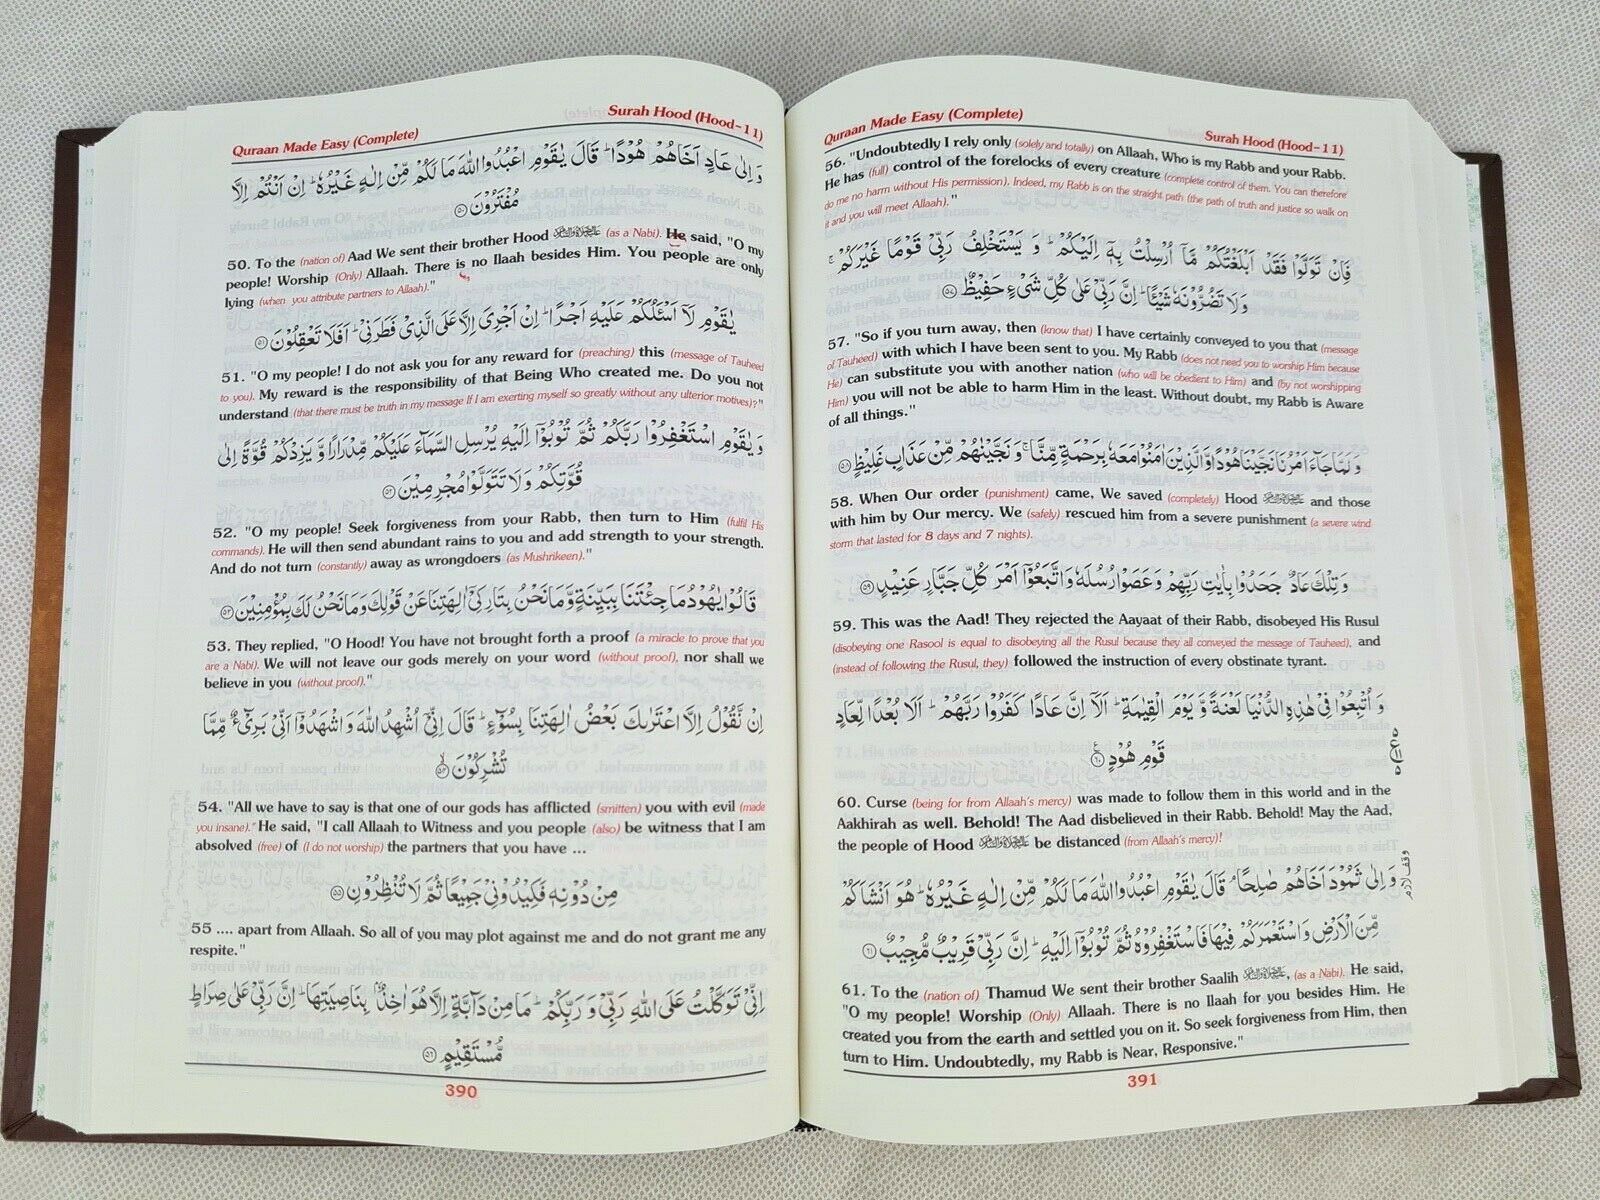 Surah Hood (Hood-11)
Quraan Made Easy (Complete)
وَ اِلٰى عَادٍ اَخَاهُمْ هُوْدًا ؕ قَالَ يٰقَوْمِ اعْبُدُوا اللّٰهَ مَا لَكُمْ مِّنْ اِلٰهٍ غَيْرُهٗ ؕ اِنْ اَنْتُمْ اِلَّا
مُفْتَرُوْنَ ۝۵۰
50. To the (nation of) Aad We sent their brother Hood (as a Nabi). He said, "O my
people! Worship (Only) Allaah. There is no Ilaah besides Him. You people are only
lying (when you attribute partners to Allaah)."
يٰقَوْمِ لَاۤ اَسْـَٔلُكُمْ عَلَيْهِ اَجْرًا ؕ اِنْ اَجْرِيَ اِلَّا عَلَى الَّذِيْ فَطَرَنِيْ ؕ اَفَلَا تَعْقِلُوْنَ ۝۵۱
51. "O my people! I do not ask you for any reward for (preaching) this (message of Tauheed
to you). My reward is the responsibility of that Being Who created me. Do you not
understand (that there must be truth in my message If I am exerting myself so greatly without any ulterior motives)?"
وَ يٰقَوْمِ اسْتَغْفِرُوْا رَبَّكُمْ ثُمَّ تُوْبُوْۤا اِلَيْهِ يُرْسِلِ السَّمَآءَ عَلَيْكُمْ مِّدْرَارًا وَّ يَزِدْكُمْ قُوَّةً اِلٰى
قُوَّتِكُمْ وَ لَا تَتَوَلَّوْا مُجْرِمِيْنَ ۝۵۲
52. "O my people! Seek forgiveness from your Rabb, then turn to Him (fulfil His
commands). He will then send abundant rains to you and add strength to your strength.
And do not turn (constantly) away as wrongdoers (as Mushrikeen)."
قَالُوْا يٰهُوْدُ مَا جِئْتَنَا بِبَيِّنَةٍ وَّ مَا نَحْنُ بِتَارِكِيْۤ اٰلِهَتِنَا عَنْ قَوْلِكَ وَ مَا نَحْنُ لَكَ بِمُؤْمِنِيْنَ ۝۵۳
53. They replied, "O Hood! You have not brought forth a proof (a miracle to prove that you
are a Nabi). We will not leave our gods merely on your word (without proof), nor shall we
believe in you (without proof)."
اِنْ نَّقُوْلُ اِلَّا اعْتَرٰىكَ بَعْضُ اٰلِهَتِنَا بِسُوْٓءٍ ؕ قَالَ اِنِّيْۤ اُشْهِدُ اللّٰهَ وَ اشْهَدُوْۤا اَنِّيْ بَرِيْٓءٌ مِّمَّا
تُشْرِكُوْنَ ۝۵۴
54. "All we have to say is that one of our gods has afflicted (smitten) you with evil (made
you insane)." He said, "I call Allaah to Witness and you people (also) be witness that I am
absolved (free) of (I do not worship) the partners that you have ...
مِنْ دُوْنِهٖ فَكِيْدُوْنِيْ جَمِيْعًا ثُمَّ لَا تُنْظِرُوْنِ ۝۵۵
55 .... apart from Allaah. So all of you may plot against me and do not grant me any
respite."
اِنِّيْ تَوَكَّلْتُ عَلَى اللّٰهِ رَبِّيْ وَ رَبِّكُمْ ؕ مَا مِنْ دَآبَّةٍ اِلَّا هُوَ اٰخِذٌۢ بِنَاصِيَتِهَا ؕ اِنَّ رَبِّيْ عَلٰى صِرَاطٍ
مُّسْتَقِيْمٍ ۝۵۶
390
Quraan Made Easy (Complete)
Surah Hood (Hood-11)
56. "Undoubtedly I rely only (solely and totally) on Allaah, Who is my Rabb and your Rabb.
He has (full) control of the forelocks of every creature (complete control of them. You can therefore
do me no harm without His permission). Indeed, my Rabb is on the straight path (the path of truth and justice so walk on
it and you will meet Allaah)."
فَاِنْ تَوَلَّوْا فَقَدْ اَبْلَغْتُكُمْ مَّاۤ اُرْسِلْتُ بِهٖۤ اِلَيْكُمْ ؕ وَ يَسْتَخْلِفُ رَبِّيْ قَوْمًا غَيْرَكُمْ ۚ
وَ لَا تَضُرُّوْنَهٗ شَيْـًٔا ؕ اِنَّ رَبِّيْ عَلٰى كُلِّ شَيْءٍ حَفِيْظٌ ۝۵۷
57. "So if you turn away, then (know that) I have certainly conveyed to you that (message
of Tauheed) with which I have been sent to you. My Rabb (does not need you to worship Him because
He) can substitute you with another nation (who will be obedient to Him) and (by not worshipping
Him) you will not be able to harm Him in the least. Without doubt, my Rabb is Aware
of all things."
وَ لَمَّا جَآءَ اَمْرُنَا نَجَّيْنَا هُوْدًا وَّ الَّذِيْنَ اٰمَنُوْا مَعَهٗ بِرَحْمَةٍ مِّنَّا ۚ وَ نَجَّيْنٰهُمْ مِّنْ عَذَابٍ غَلِيْظٍ ۝۵۸
58. When Our order (punishment) came, We saved (completely) Hood and those
with him by Our mercy. We (safely) rescued him from a severe punishment (a severe wind
storm that lasted for 8 days and 7 nights).
وَ تِلْكَ عَادٌ جَحَدُوْا بِاٰيٰتِ رَبِّهِمْ وَ عَصَوْا رُسُلَهٗ وَ اتَّبَعُوْۤا اَمْرَ كُلِّ جَبَّارٍ عَنِيْدٍ ۝۵۹
59. This was the Aad! They rejected the Aayaat of their Rabb, disobeyed His Rusul
(disobeying one Rasool is equal to disobeying all the Rusul because they all conveyed the message of Tauheed), and
(instead of following the Rusul, they) followed the instruction of every obstinate tyrant.
وَ اُتْبِعُوْا فِيْ هٰذِهِ الدُّنْيَا لَعْنَةً وَّ يَوْمَ الْقِيٰمَةِ ؕ اَلَاۤ اِنَّ عَادًا كَفَرُوْا رَبَّهُمْ ؕ اَلَا بُعْدًا لِّعَادٍ
قَوْمِ هُوْدٍ ۝۶۰
60. Curse (being for from Allaah's mercy) was made to follow them in this world and in the
Aakhirah as well. Behold! The Aad disbelieved in their Rabb. Behold! May the Aad,
the people of Hood be distanced (from Allaah's mercy)!
وقف لازم
وَ اِلٰى ثَمُوْدَ اَخَاهُمْ صٰلِحًا ۘ قَالَ يٰقَوْمِ اعْبُدُوا اللّٰهَ مَا لَكُمْ مِّنْ اِلٰهٍ غَيْرُهٗ ؕ هُوَ اَنْشَاَكُمْ
مِّنَ الْاَرْضِ وَ اسْتَعْمَرَكُمْ فِيْهَا فَاسْتَغْفِرُوْهُ ثُمَّ تُوْبُوْۤا اِلَيْهِ ؕ اِنَّ رَبِّيْ قَرِيْبٌ مُّجِيْبٌ ۝۶۱
61. To the (nation of) Thamud We sent their brother Saalih , (as a Nabi). He said,
"O my people! Worship (Only) Allaah. There is no Ilaah for you besides Him. He
created you from the earth and settled you on it. So seek forgiveness from Him, then
turn to Him. Undoubtedly, my Rabb is Near, Responsive."
391